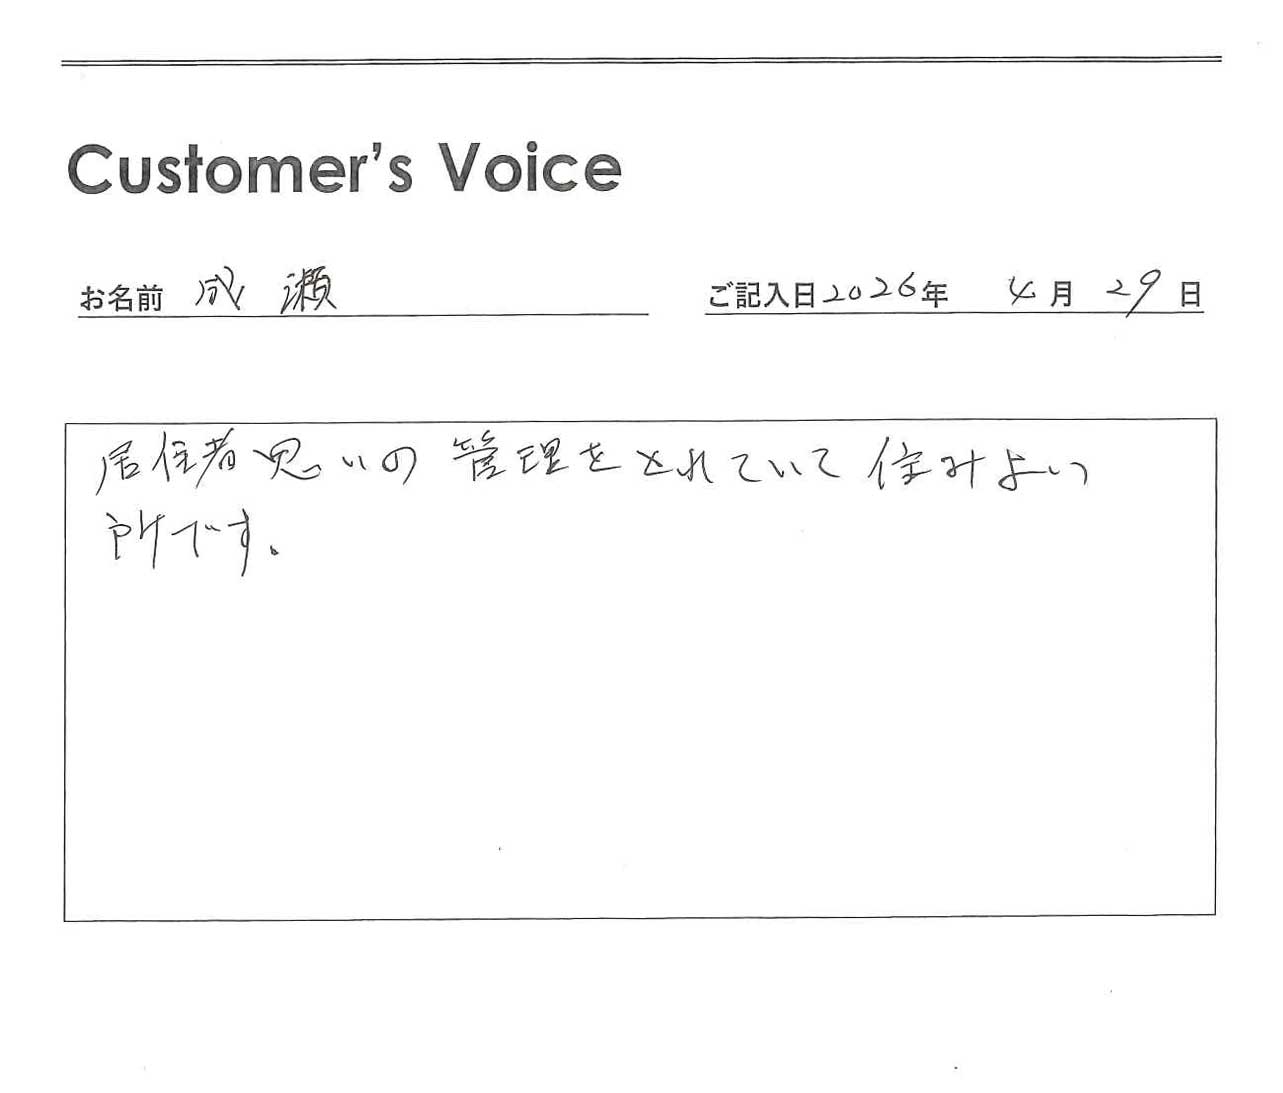 Customer's Voice
お名前 成瀬
ご記入日2026年 4月 29日
居住者思いの管理をとれていて住みよい
所です。